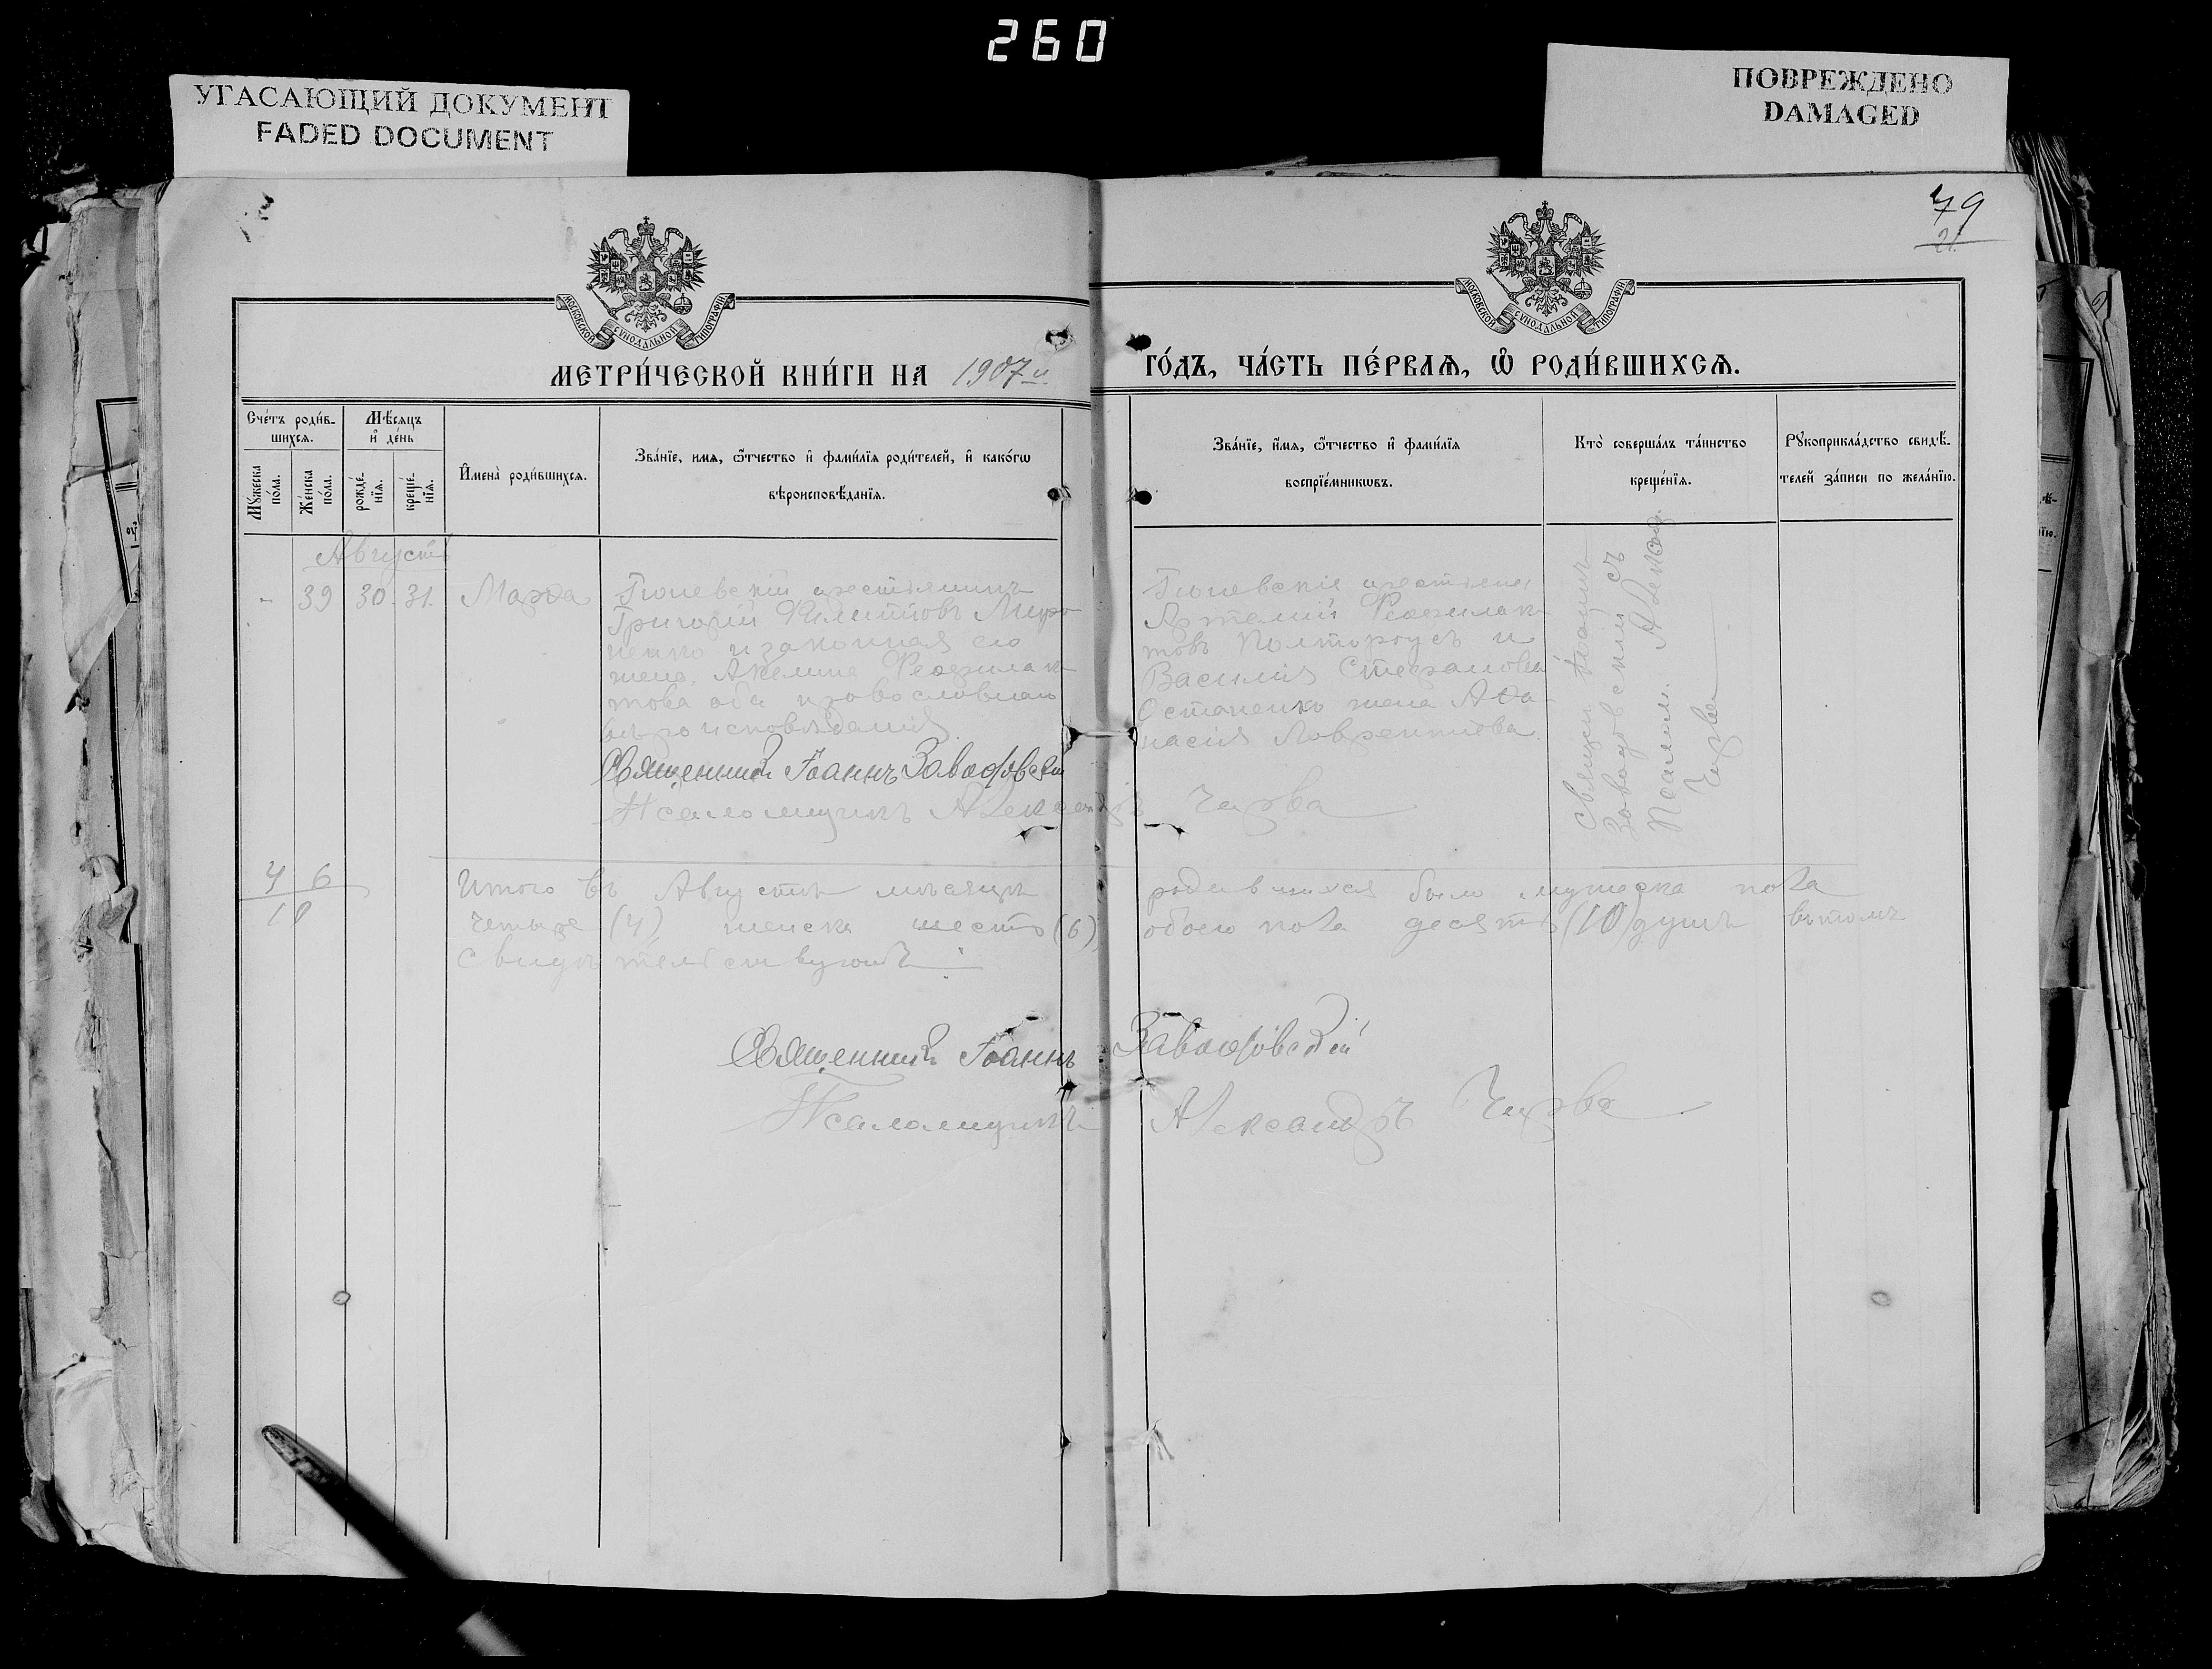 260
УГАСАЮЩИЙ ДОКУМЕНТ
FADED DOCUMENT
ПОВРЕЖДЕНО
DAMAGED
79
21
МОСКОВСКОЙ СѴНОДАЛЬНОЙ ТИПОГРАФІИ
МОСКОВСКОЙ СѴНОДАЛЬНОЙ ТИПОГРАФІИ
МЕТРИ́ЧЕСКОЙ КНИ́ГИ НА 1907 й
ГО́ДЪ, ЧА́СТЬ ПЕ́РВАѦ, Ѽ РОДИ́ВШИХСѦ.
Сче́тъ роди́в-
шихсѧ.
Мѣ́сѧцъ
и҆ де́нь
Мꙋ́жеска
по́ла.
Же́нска
по́ла.
рожде́-
нїѧ.
креще́-
нїѧ.
И҆мена̀ роди́вшихсѧ.
Зва́нїе, имѧ, ѻ҆́тчество и҆ фами́лїѧ роди́телей, и҆ како́гѡ
вѣроисповѣ́данїѧ.
Зва́нїе, и҆́мѧ, ѻ҆́тчество и҆ фами́лїѧ
воспрїе́мникѡвъ.
Кто̀ соверша́лъ та́инство
креще́нїѧ.
Рꙋкоприкла́дство свидѣ́-
телей за́писи по жела́нїю.
Августъ
- 39 30. 31. Марѳа
крестьянинъ
Григорій Миро
ненко и законная его
жена, Акелина Феофилак
това оба православнаго
вѣроисповѣданія
Священникъ Іоаннъ Заводовскій
Псаломщикъ Александръ Чирва
крестьяне,
Артемій Феофилак
товъ Полтороусъ и
Василія Стефанова
Остапенко жена Аѳа
насія Лаврентіева.
Священ. Іоаннъ
Заводовскій съ
Псалом. Александ.
Чирва
4 6
10
Итого въ Августѣ мѣсяцѣ родившихся было мужеска пола
четыре (4) женска шесть (6) обоего пола десять (10) душъ въ томъ
свидѣтельствуютъ:
Священникъ Іоаннъ Заводовскій
Псаломщикъ Александръ Чирва